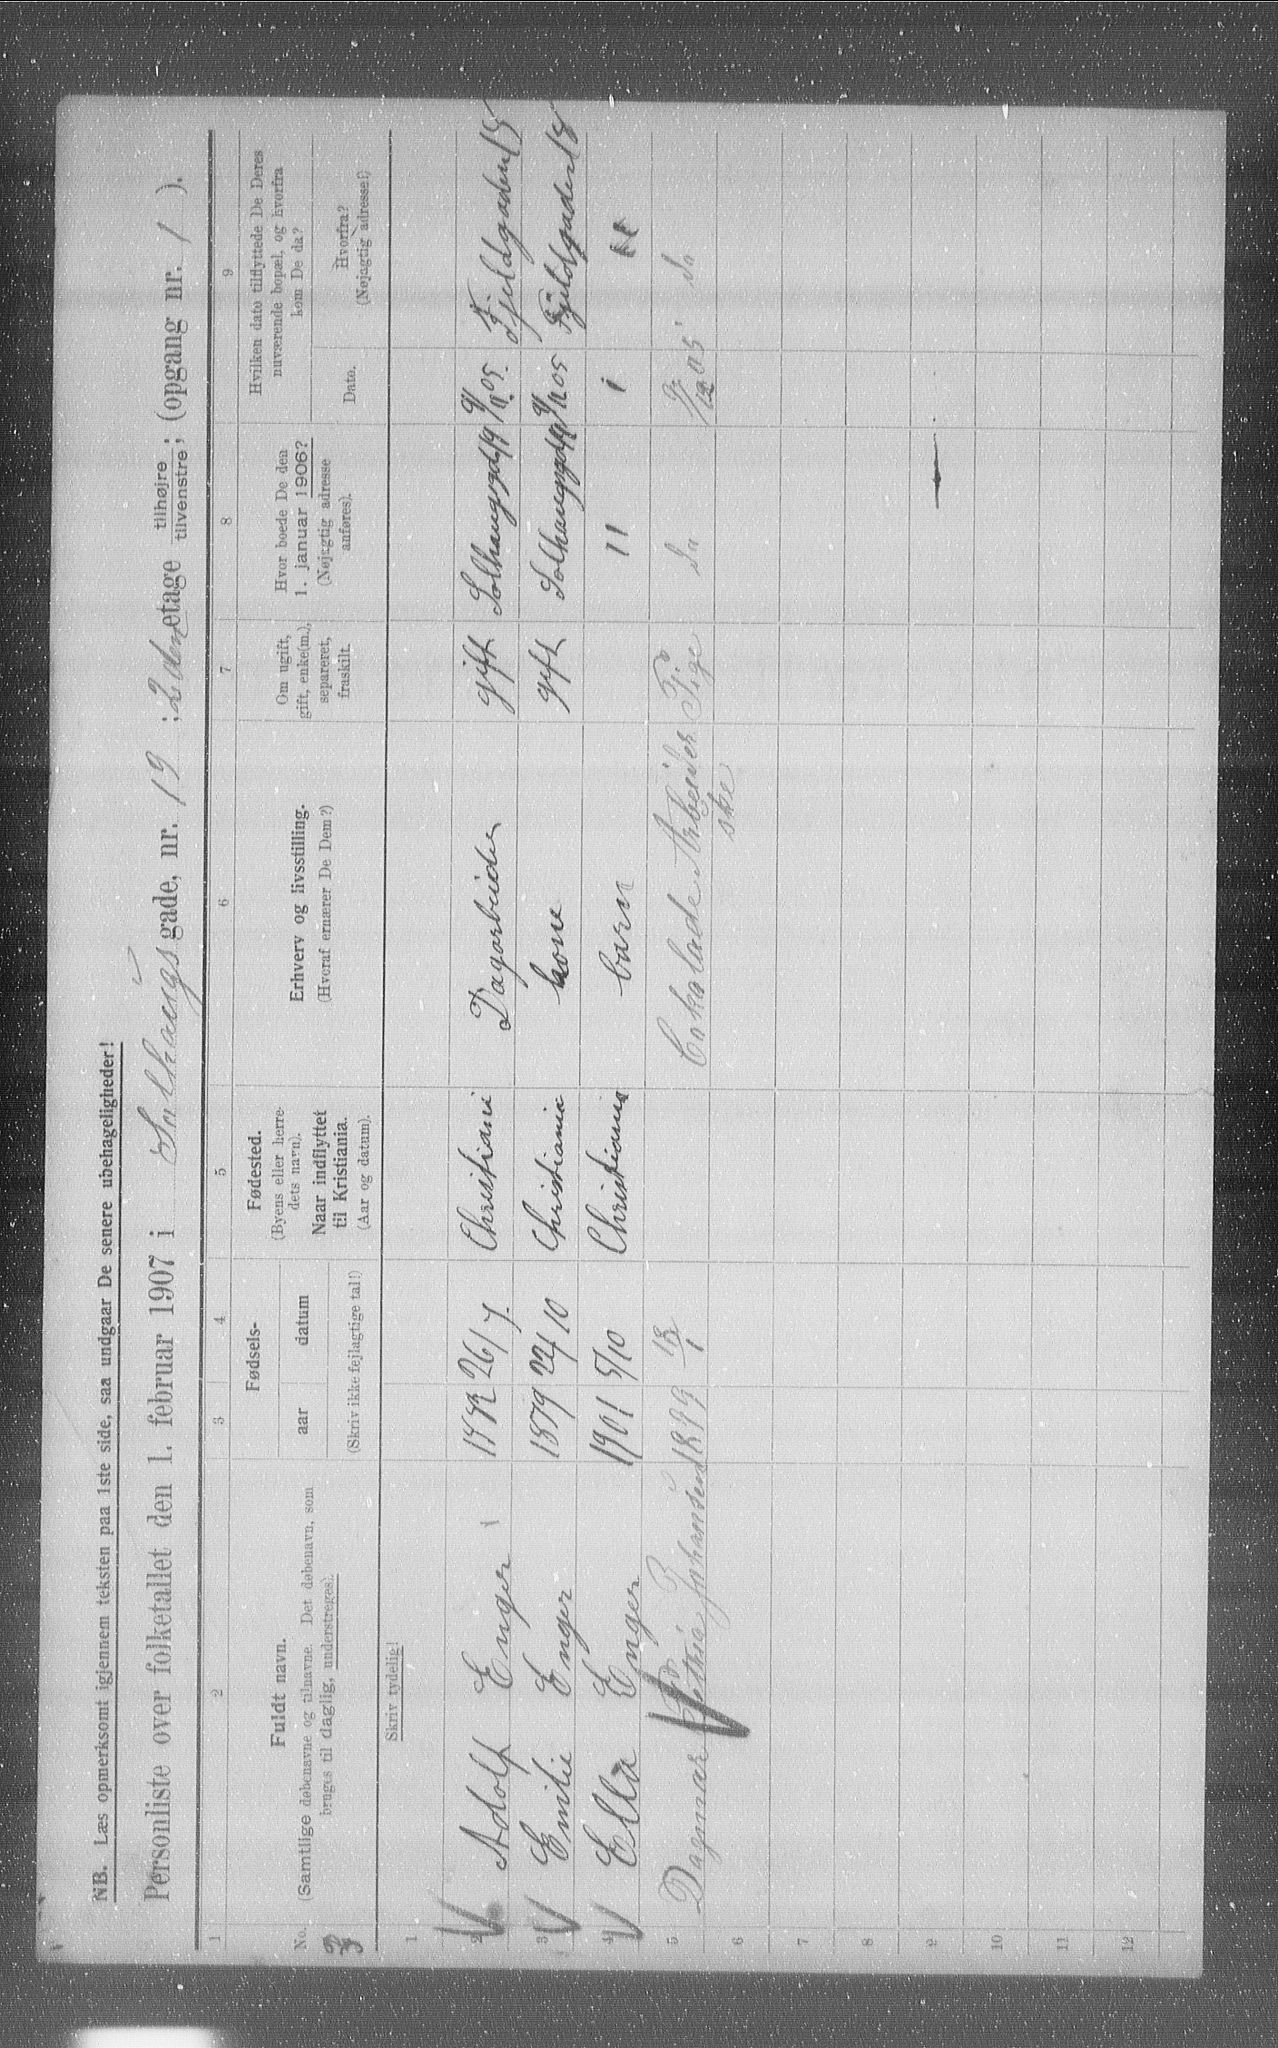 NB. Læs opmerksomt igjennem teksten paa 1ste side, saa undgaar De senere ubehageligheder!
Personliste over folketallet den 1. februar 1907 i Solhaugsgade, nr. 19 ; 2den etage tilhøjre tilvenstre; (opgang nr. 1 ).
1 2 3 4 5 6 7 8 9
No. Fuldt navn.
(Samtlige døbenavne og tilnavne. Det døbenavn, som
bruges til daglig, understreges).
Fødsels-
aar datum
(Skriv ikke fejlagtige tal!)
Fødested.
(Byens eller herre-
dets navn).
Naar indflyttet
til Kristiania.
(Aar og datum).
Erhverv og livsstilling.
(Hvoraf ernærer De Dem?)
Om ugift,
gift, enke(m.),
separeret,
fraskilt.
Hvor boede De den
1. januar 1906?
(Nøjagtig adresse
anføres).
Hvilken dato tilflyttede De Deres
nuværende bopæl, og hvorfra
kom De da?
Dato. Hvorfra?
(Nøjagtig adresse!)
Skriv tydelig!
1
2 Adolf Enger 26/7 Christiani Dagarbeider gift Solhaugsgd 19 05 Fjeldgaden 18
3 Emilie Enger 1879 22/10 Christiania kone gift Solhaugsgd 19 05 Fjeldgaden 18
4 Ella Enger 1901 5/10 Christiania barn " "
5 Dagmar Johansen 18/1 Cokolade Arbeider Pige 05 do
ske
6
7
8
9
10
11
12